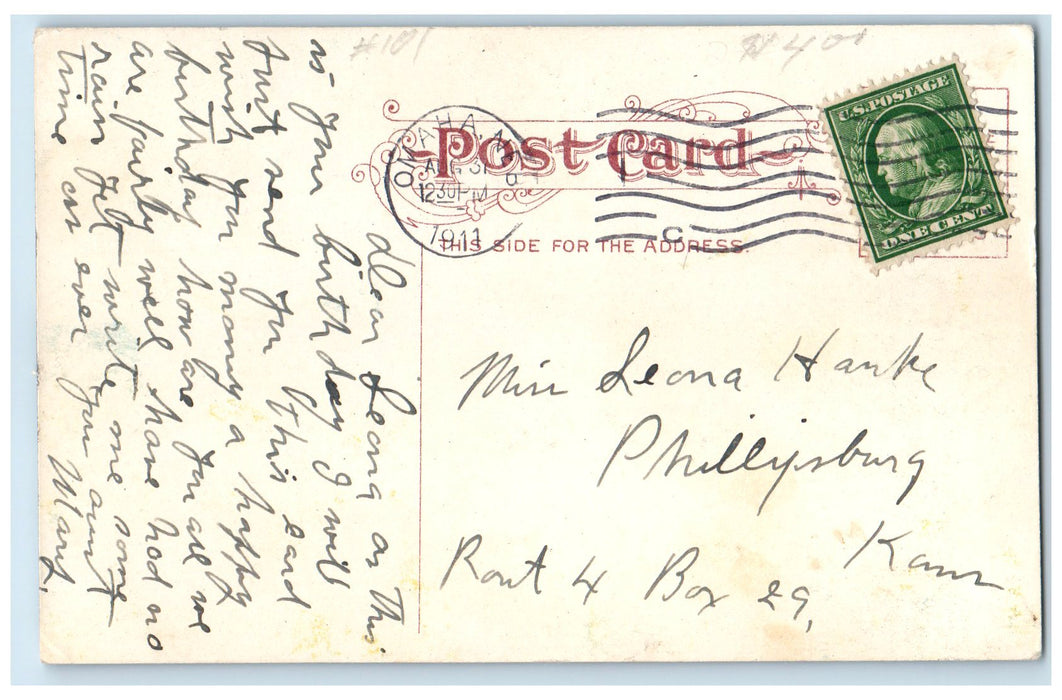 #101
N 400
Post Card
THIS SIDE FOR THE ADDRESS.
OMAHA, N
AUG 31
1230 PM
1911
C
U.S. POSTAGE
ONE CENT
dear Leona as this
is your birthday I will
just send you this card
wish you many a happy
birthday how are you all we
are fairly well have had no
rain yet write me some
time as ever your aunt
Mary.
Miss Leona Hanke
Phillipsburg
Kans
Rout 4 Box 29,